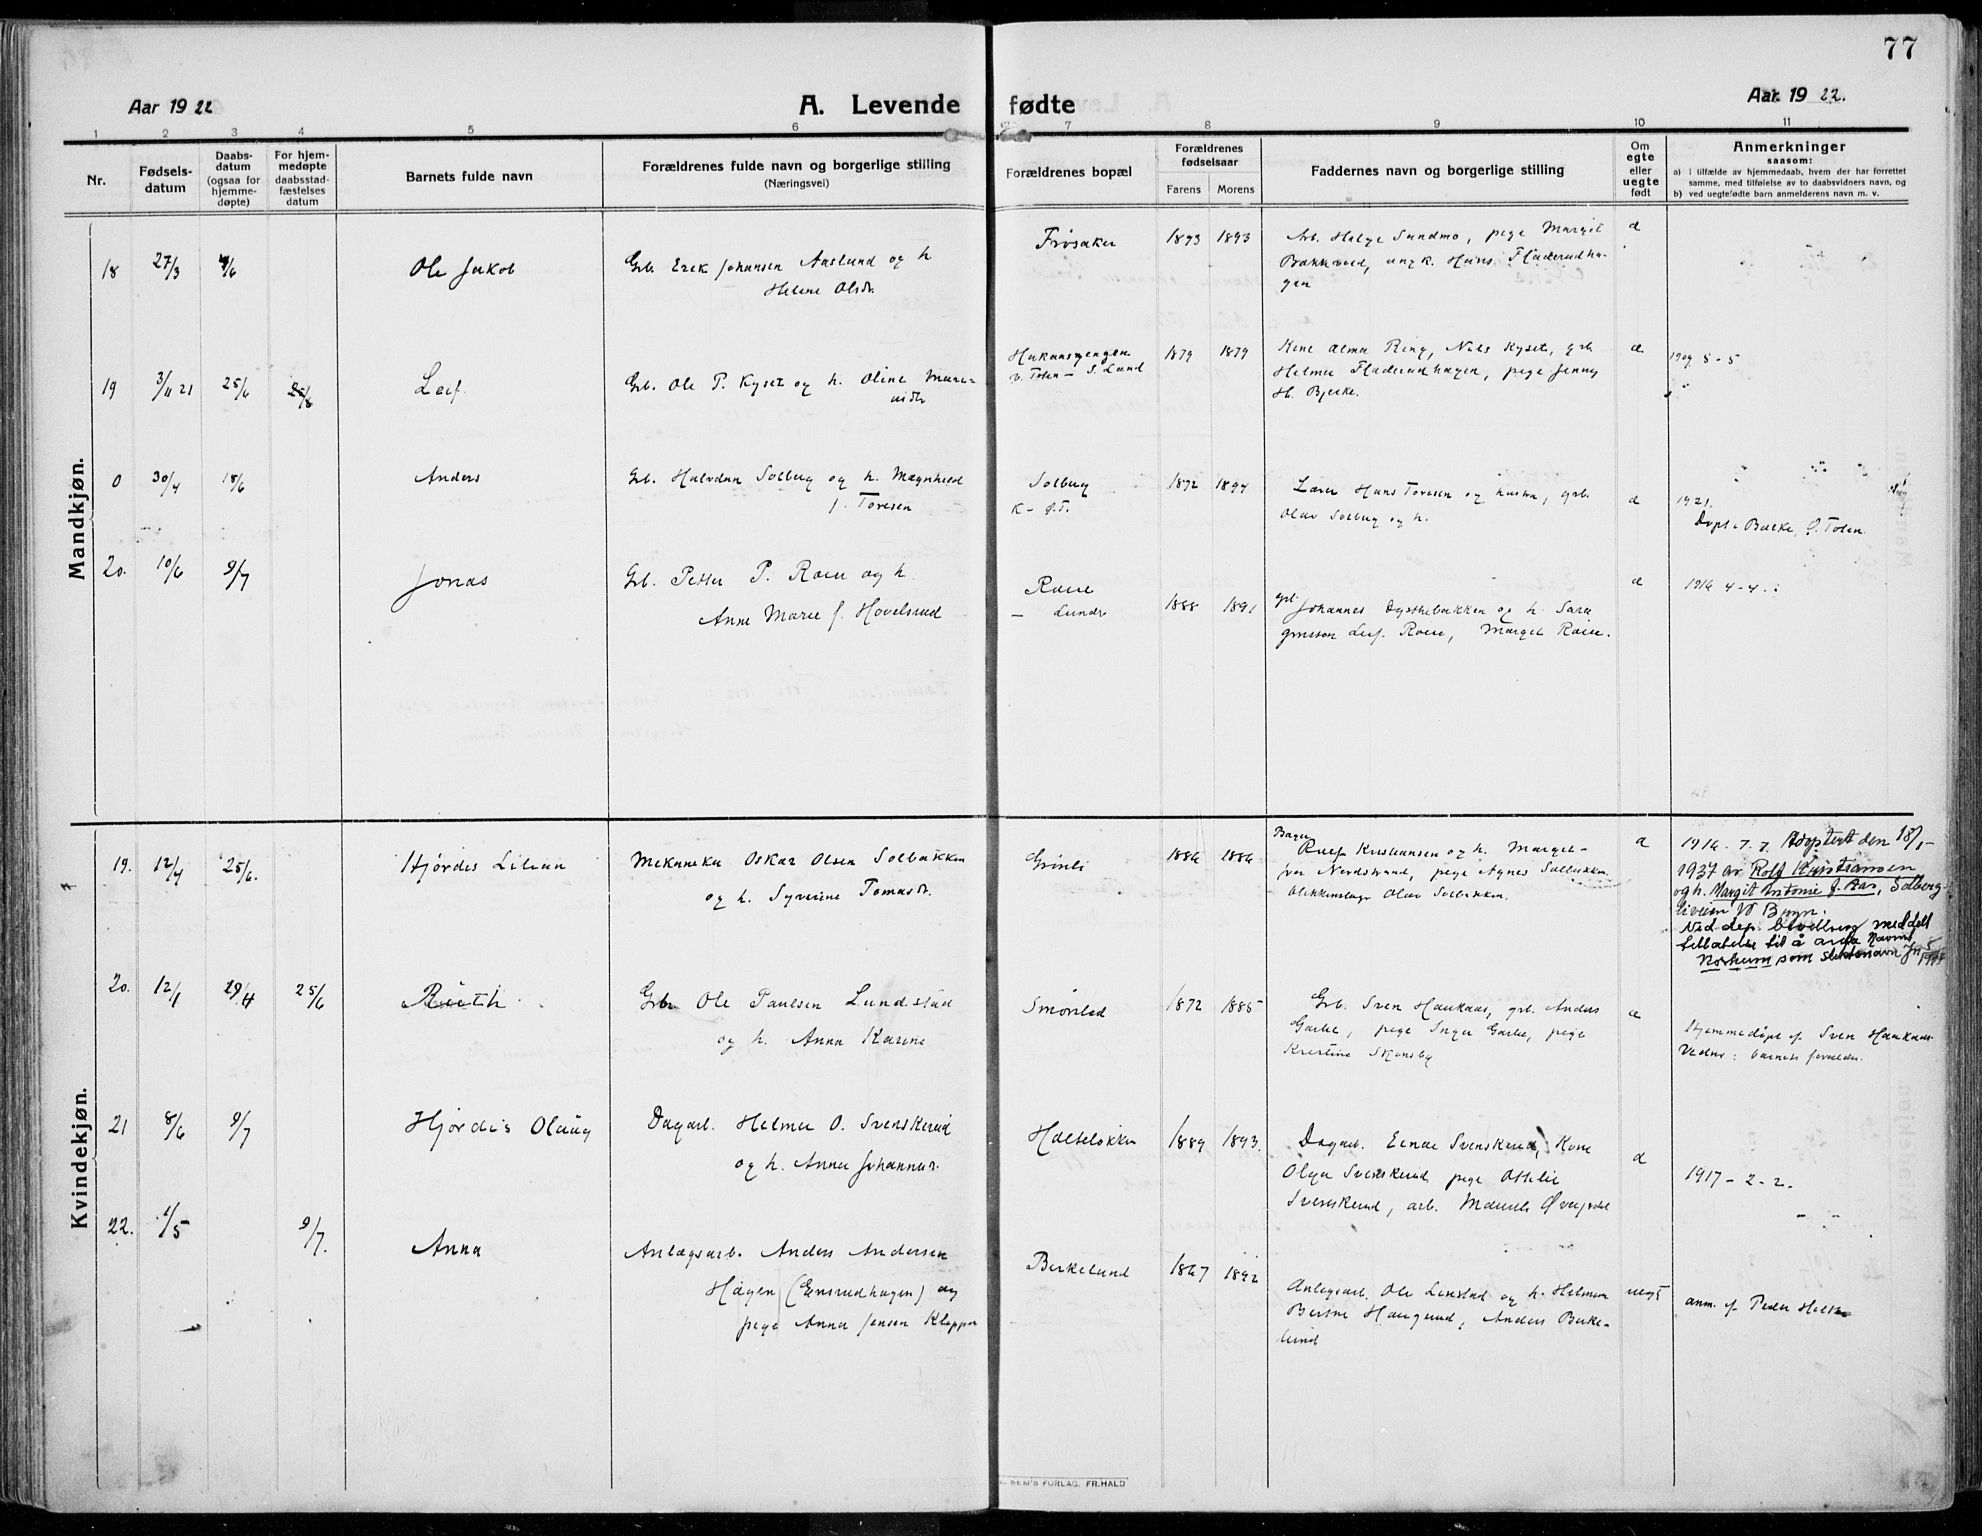 77
Aar 1922
A. Levende fødte
Aar 1922.
1 2 3 4 5 6 7 8 9 10 11
Nr.
Fødsels-
datum
Daabs-
datum
(ogsaa for
hjemme-
døpte)
For hjem-
medøpte
daabsstad-
fæstelses
datum
Barnets fulde navn
Forældrenes fulde navn og borgerlige stilling
(Næringsvei)
Forældrenes bopæl
Forældrenes
fødselsaar
Farens Morens
Faddernes navn og borgerlige stilling
Om
egte
eller
uegte
født
Anmerkninger
saasom:
a) i tilfælde av hjemmedaab, hvem der har forrettet
samme, med tilføielse av to daabsvidners navn, og
b) ved uegtefødte barn anmelderens navn m. v.
Mandkjøn.
18 27/3 4/6 Ole Jakob
Grb. Erek Johansen Aaslund og h.
Helene Olsdr.
Frøsaker 1893 1893
Arb. Helge Sundmo, pege Margit
Bakkveld, ungk. Hans Fladerudha-
gen
19 3/11 21 25/6 25/6 Leif.
Grb. Ole P. Kyset og h. Oline
V. Toten - S. Lund 1879 1879
Kone Alma Ring, Nils Kyset, grb.
Helmer Fladerudhagen, pege Jenny
H. Bjerke.
1909 5-5
0 30/4 18/6 Anders
Grb. Halvdan Solberg og h. Magnhild
f. Toresen
Solberg
K - Ø.T. 1892 1894
Lærer Hans Toresen og hustru, grb.
Olav Solberg og h.
1921.
Døpt i Balke, Ø. Toten.
20. 10/6 9/7 Jonas
Grb. Petter P. Roise og h.
Anne Marie f. Hovelsrud
- Lunde 1888 1891
grb. Johannes Dysthebakken og h. Sara
Leif Roise, Margit Roise.
1916 4-4
Kvindekjøn.
19. 12/4 25/6. Hjørdis Lilian
Mekaneker Oskar Olsen Solbakken
og h. Syverine Tomasdr.
Grønli 1886 1886
Bager
Rolf Kristiansen og h. Margit
Nordstrand, pege Agnes Solbakken,
Blikkenslager Olav Solbakken.
1916. 7.7. Adoptert den 18/1-
1937 av Rolf Kristiansen
og h. Margit Antonie f. Aas, Solberg-
liveien
Ved dep. bevilling meddelt
tillatelse til å anta navnet
som slektsnavn
20. 12/1 29/4 25/6 Ruth
Grb. Ole Paulsen Lundstad
og h. Anna Karine
Smørstad 1872 1885
Grb. Sven Haukaas, grb. Anders
Garbe, pege Inger Garbe, pege
Kristine Skonsby
Hjemmedøpt af Sven Haukaas
Vidner: barnets forældre.
21 8/6 9/7 Hjørdis Olaug
Dagarb. Helmer O. Svenskerud
og h. Anna Johannesdr.
Holteløkken 1889 1893.
Dagarb. Einar Svenskerud, Kone
Olga Svenskerud pege Ottilie
Svenskerud, arb.
1917 - 2-2.
22. 1/5 9/7. Anna
Anlægsarb. Anders Andersen
Hagen (Ensrudhagen) og
pege Anna Jensen Kloppen
Birkelund 1867 1892
Anlegsarb. Ole Lenstad og h. Helmine
Bertine Haugerud, Anders Birke-
lund
uegt
anm. af Peder
SEM'S FORLAG. FR. HALD